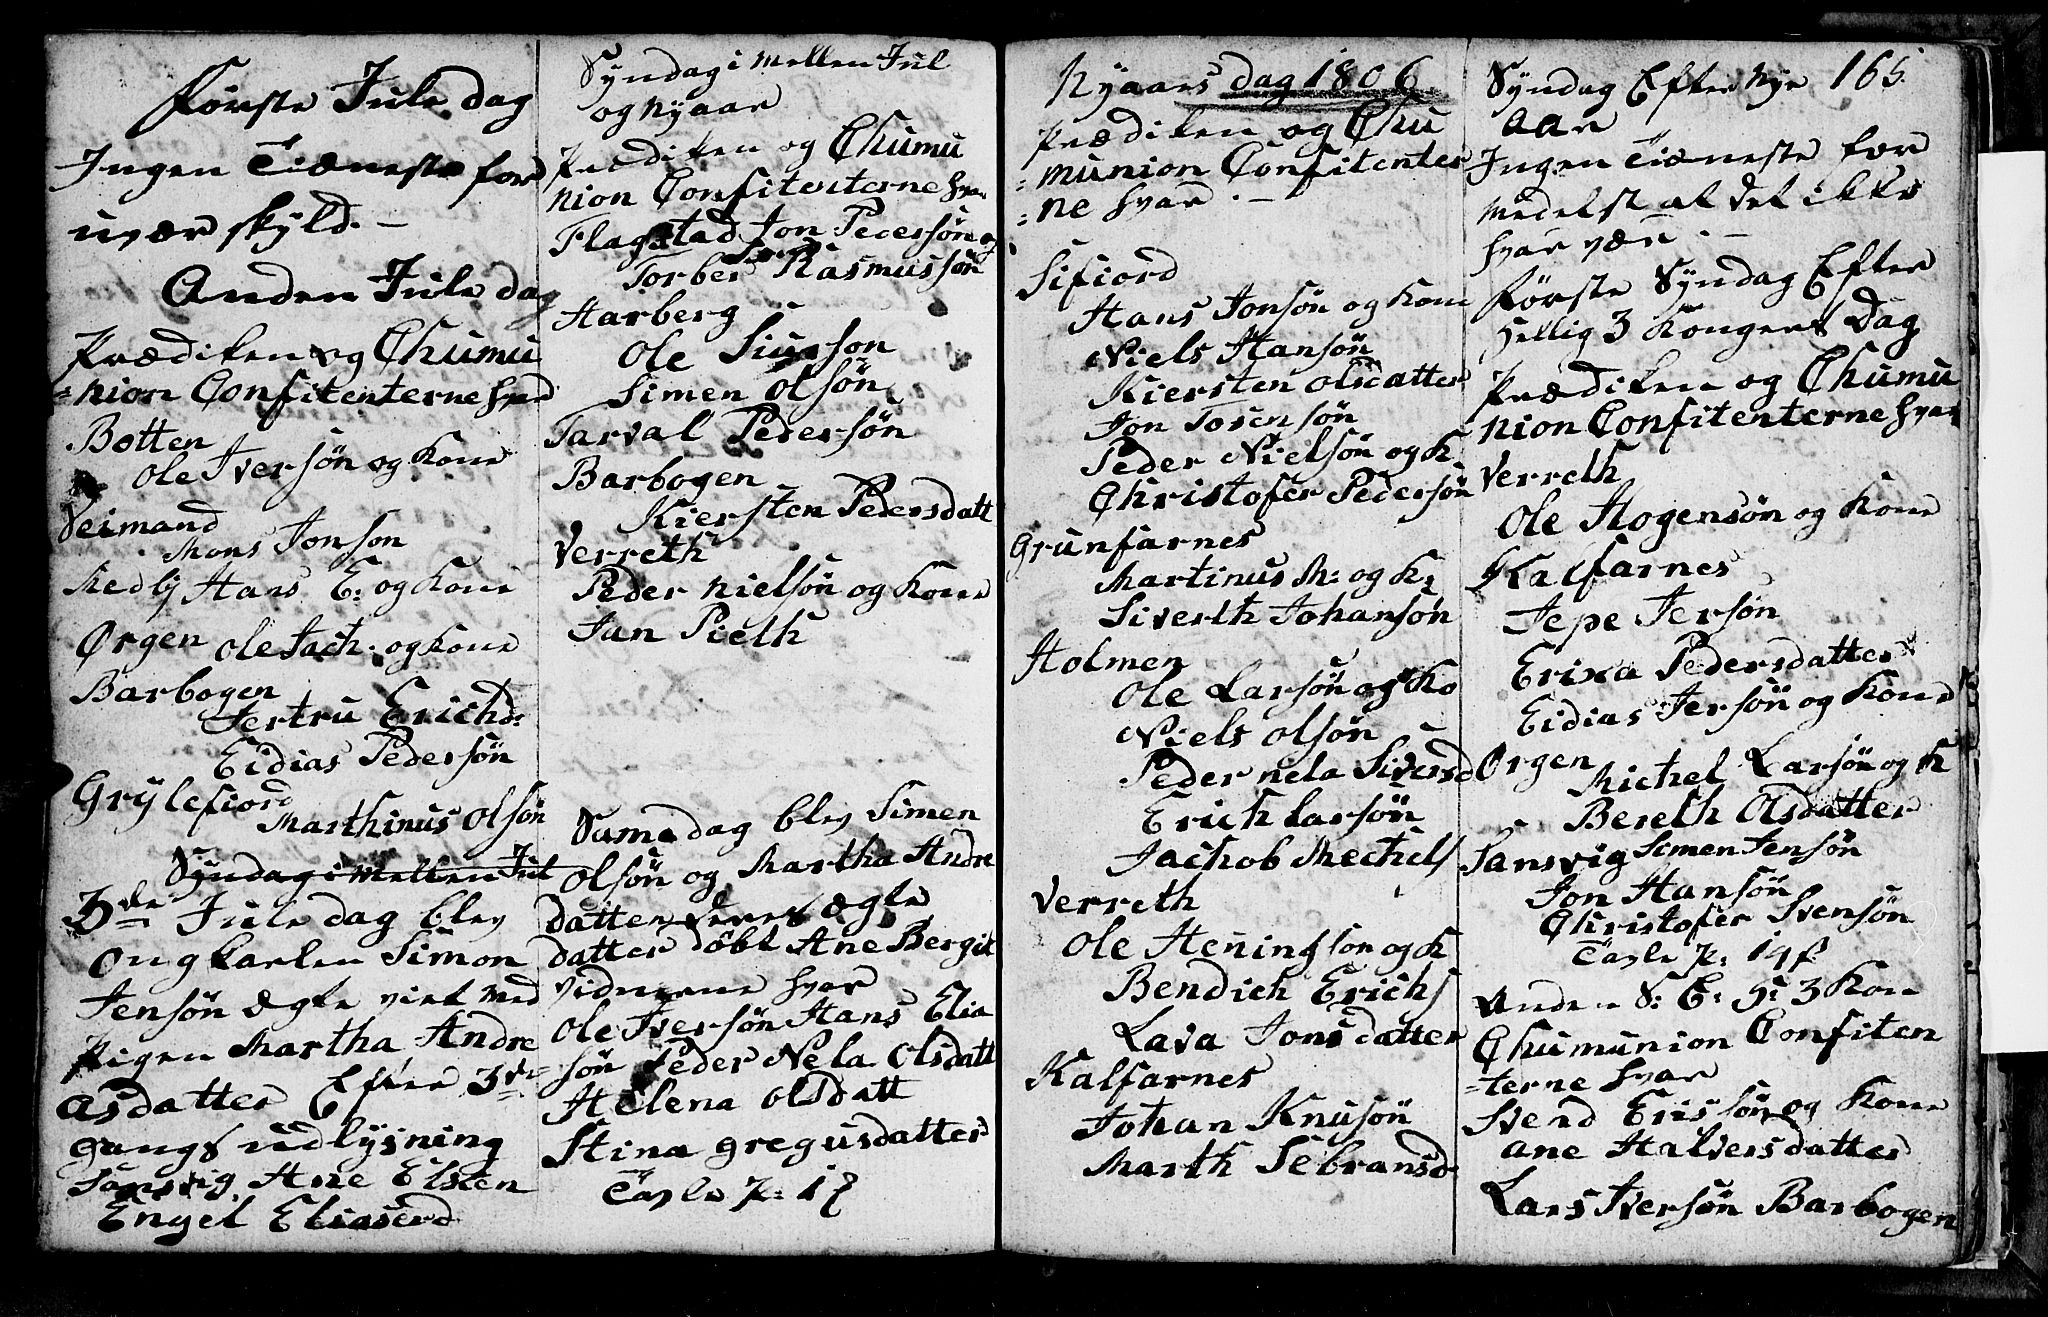 Første Jule dag
Ingen Tiæneste for
uvær skyld. -
Anden Jule dag
Prædiken og Chumu
=nion Confitenterne hvar
Botten
Ole Iversøn og Kone
Veimand
Mons Jonson
Medby Hans E: og Kone
Ørgen Ole Jach. og Kone
Barbogen
Jertru Erichd:
Eidias Pedersøn
Grylefiord
Marthinus Olsøn
Syndag i mellen Jul
3de Jule dag blev
Ongkarlen Simon
Jensøn ægte viet med
Pigen Martha Andre
asdatter Efter 3de
gangs udlysning
Sansvig Ane Elsten
Engel Eliaserd
Syndag i mellen Jul
og Nyaar
Prædiken og Chumu
nion Confitenterne hvar
Flagstad Jon Pedersøn og
Torber Rasmussøn
Harberg
Ole Siurson
Simen Olsøn
Tarval Pedersøn
Barbogen
Kiersten Pedersdatt
Verreth
Peder Nielsøn og Kone
Jan Pieth
Same dag blev Simen
Olsøn og Martha Andre
datter deres ægte
datter døbt Ane Bergit
vidnerne hvar
Ole Iversøn Hans Elia
søn Peder Nela Olsdatt
Helena Olsdatt
Stina Gregusdatter
Tavle p: 1 ß
Nyaars dag 1806
Prædiken og Chu
=munion Confitenter
=ne hvar. -
Sifiord
Hans Jonsøn og Kone
Niels Hansøn
Kiersten Olsdatter
Jon Tosensøn
Peder Nielsøn og K
Christofer Pedersøn
Grunfarnes
Martinus M: og K:
Siverth Johansøn
Holmen
Ole Larsøn og Ko
Niels Olsøn
Peder nela Siversd
Erich Larsøn
Jachob Mechels
Verreth
Ole Heningson og K
Bendich Erichs
Lava Jonsdatter
Kalfarnes
Johan Knusøn
Marth Sebransd
165
Syndag Efter Nye
aar
Ingen Tiæneste for
medelst at det ikke
hvar vær. -
Første Syndag Efter
Hellig 3 Kongers Dag
Prædiken og Chumu
nion Confitenterne hvar
Verreth
Ole Hogensøn og Kone
Kalfarnes
Jepe Jersøn
Erixa Pedersdatter
Eidias Jersøn og Kone
Ørgen
Michel Larsøn og K
Bereth Olsdatter
Sansvig Semen Jensøn
Jon Hansøn
Christofer Svensøn
Tavle p: 19 ß
Anden S: E: H: 3 Kon
Chumunion Confiten
=terne hvar
Svend Erissøn og Kone
Ane Halversdatter
Lars Iversøn Barbogen